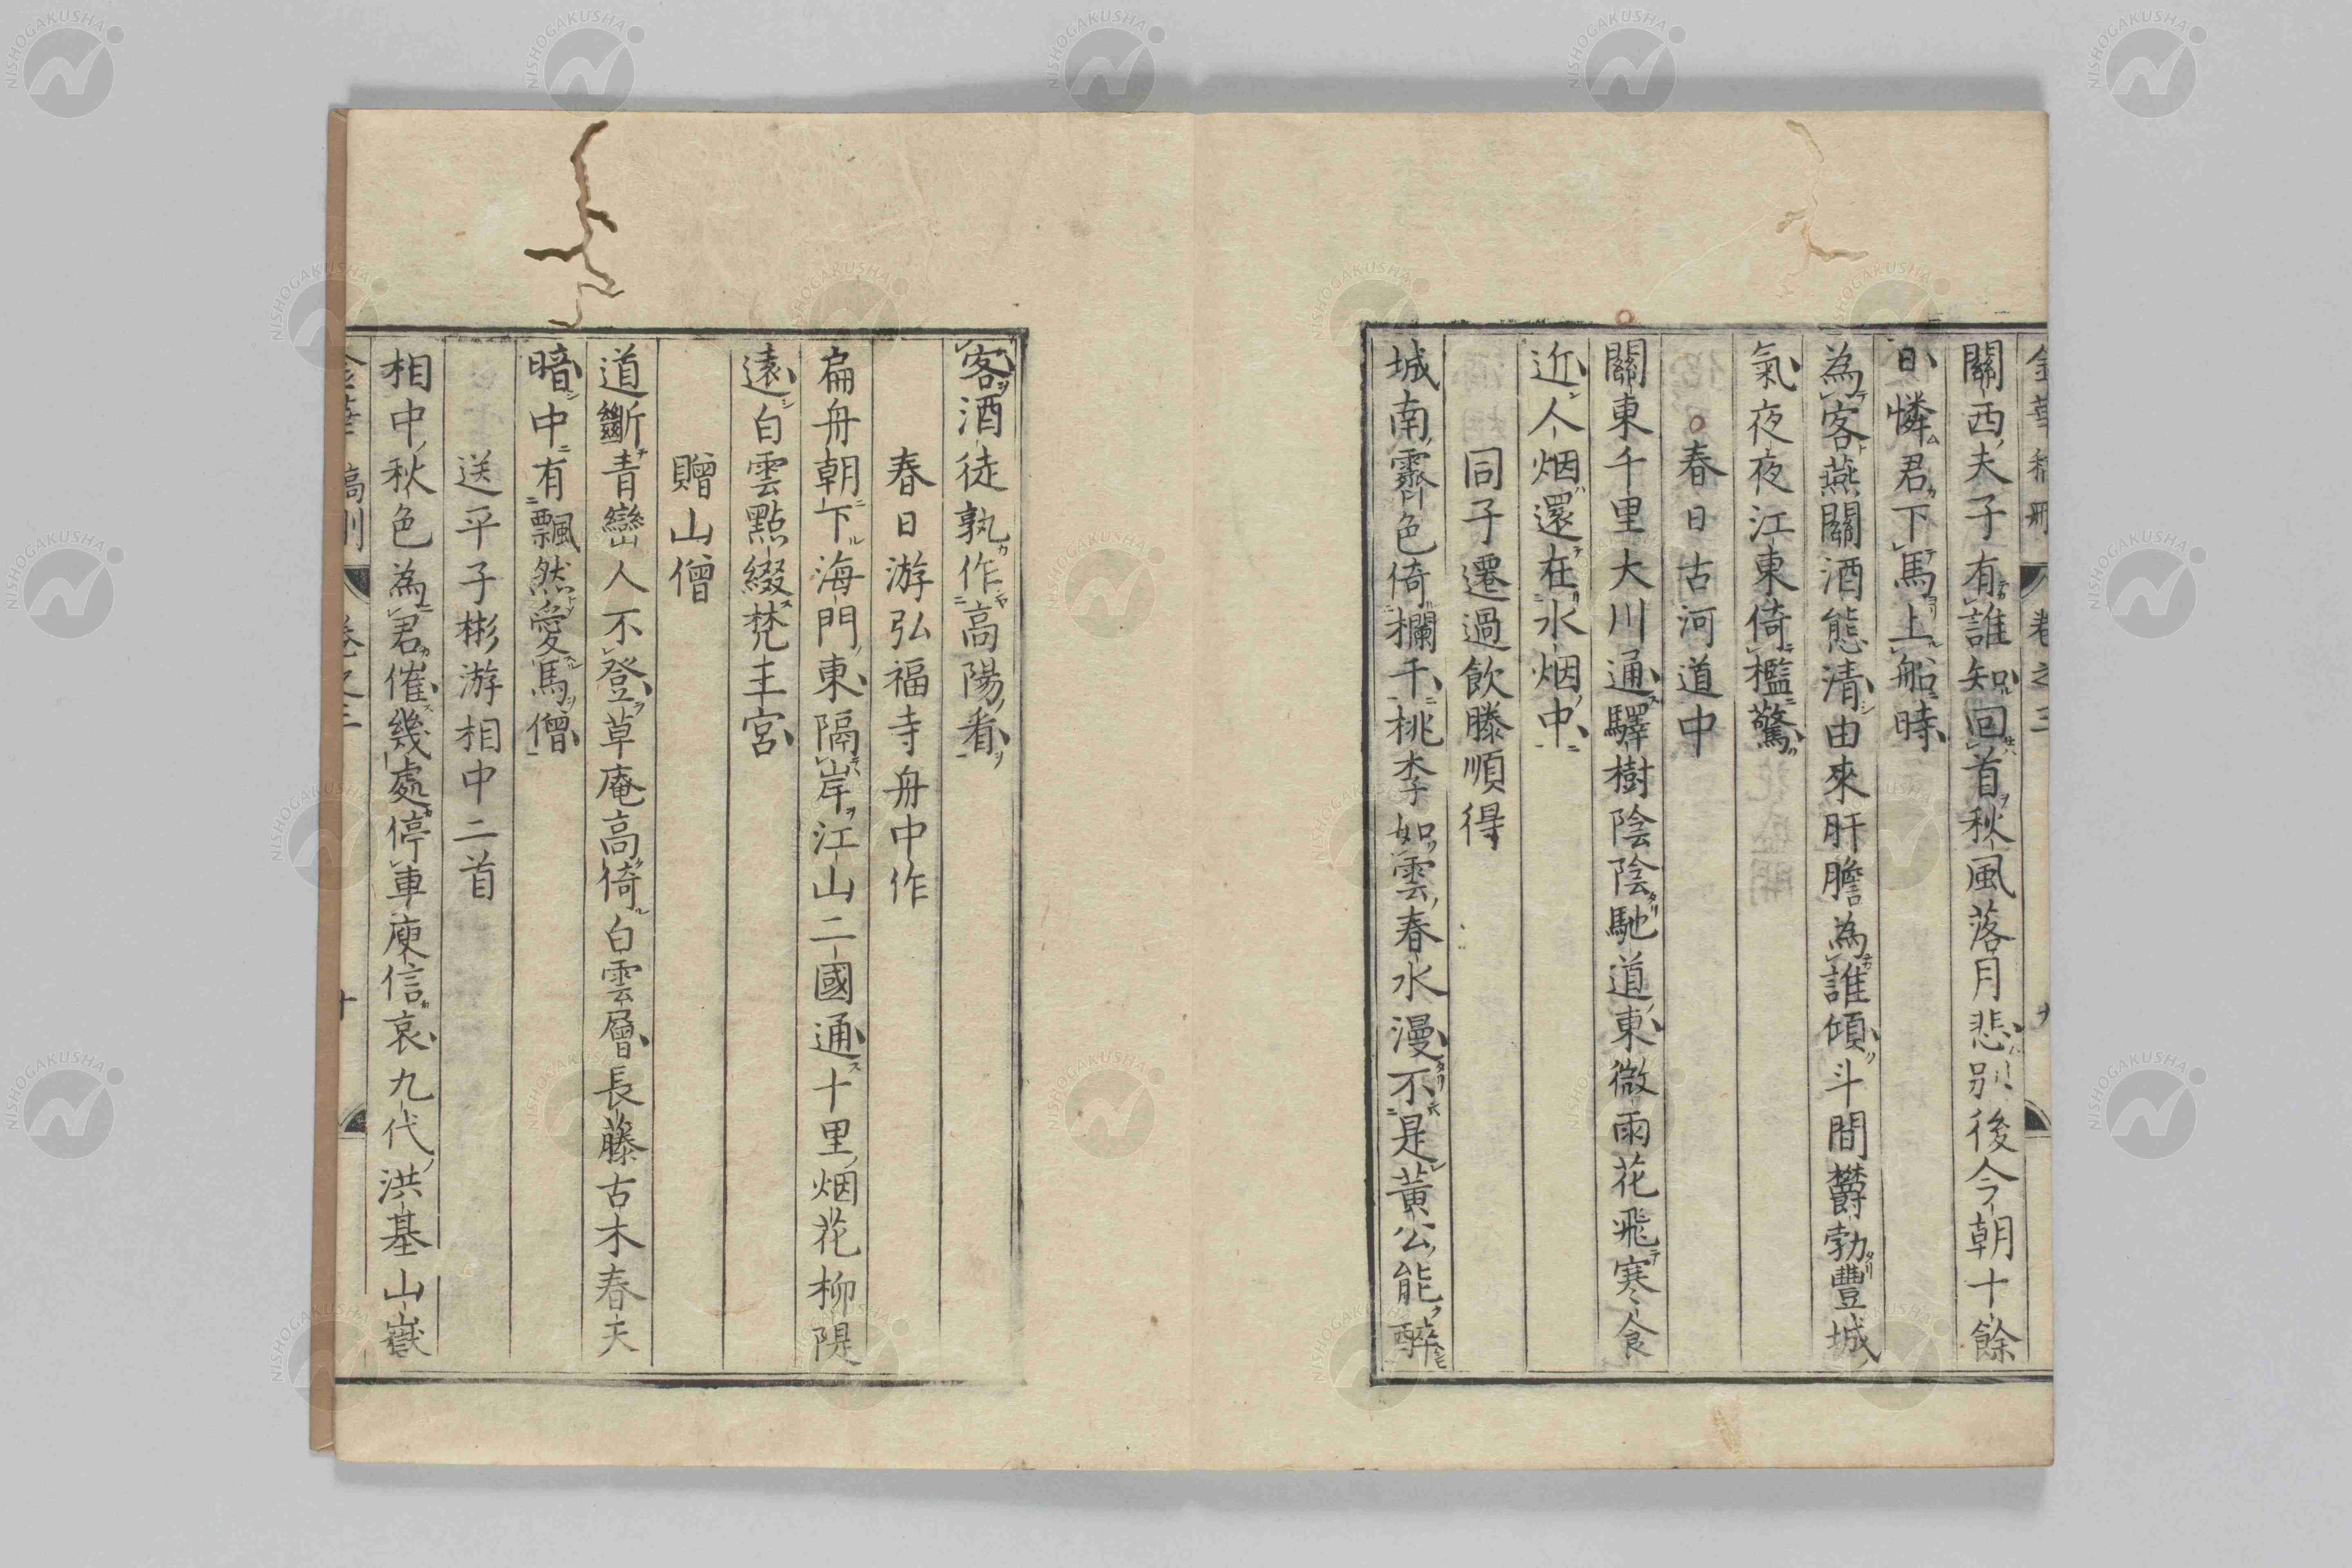 金華稿刪 卷之三 九
關西夫子有誰知回首秋風落月悲別後今朝十餘
日憐君下馬上船時
為客燕關酒態清由來肝膽為誰傾斗間欝勃豐城
氣夜夜江東倚檻驚
春日古河道中
關東千里大川通驛樹陰陰馳道東微雨花飛寒食
近人烟還在水烟中
同子遷過飲滕順得
城南霽色倚欄干桃李如雲春水漫不是黃公能醉
客酒徒孰作高陽看
春日游弘福寺舟中作
扁舟朝下海門東隔岸江山二國通十里烟花柳隄
遠白雲點綴梵王宮
贈山僧
道斷青巒人不登草庵高倚白雲層長藤古木春天
暗中有飄然愛馬僧
送平子彬游相中二首
相中秋色為君催幾處停車庾信哀九代洪基山嶽
金華稿刪 卷之三 十
NISHOGAKUSHA